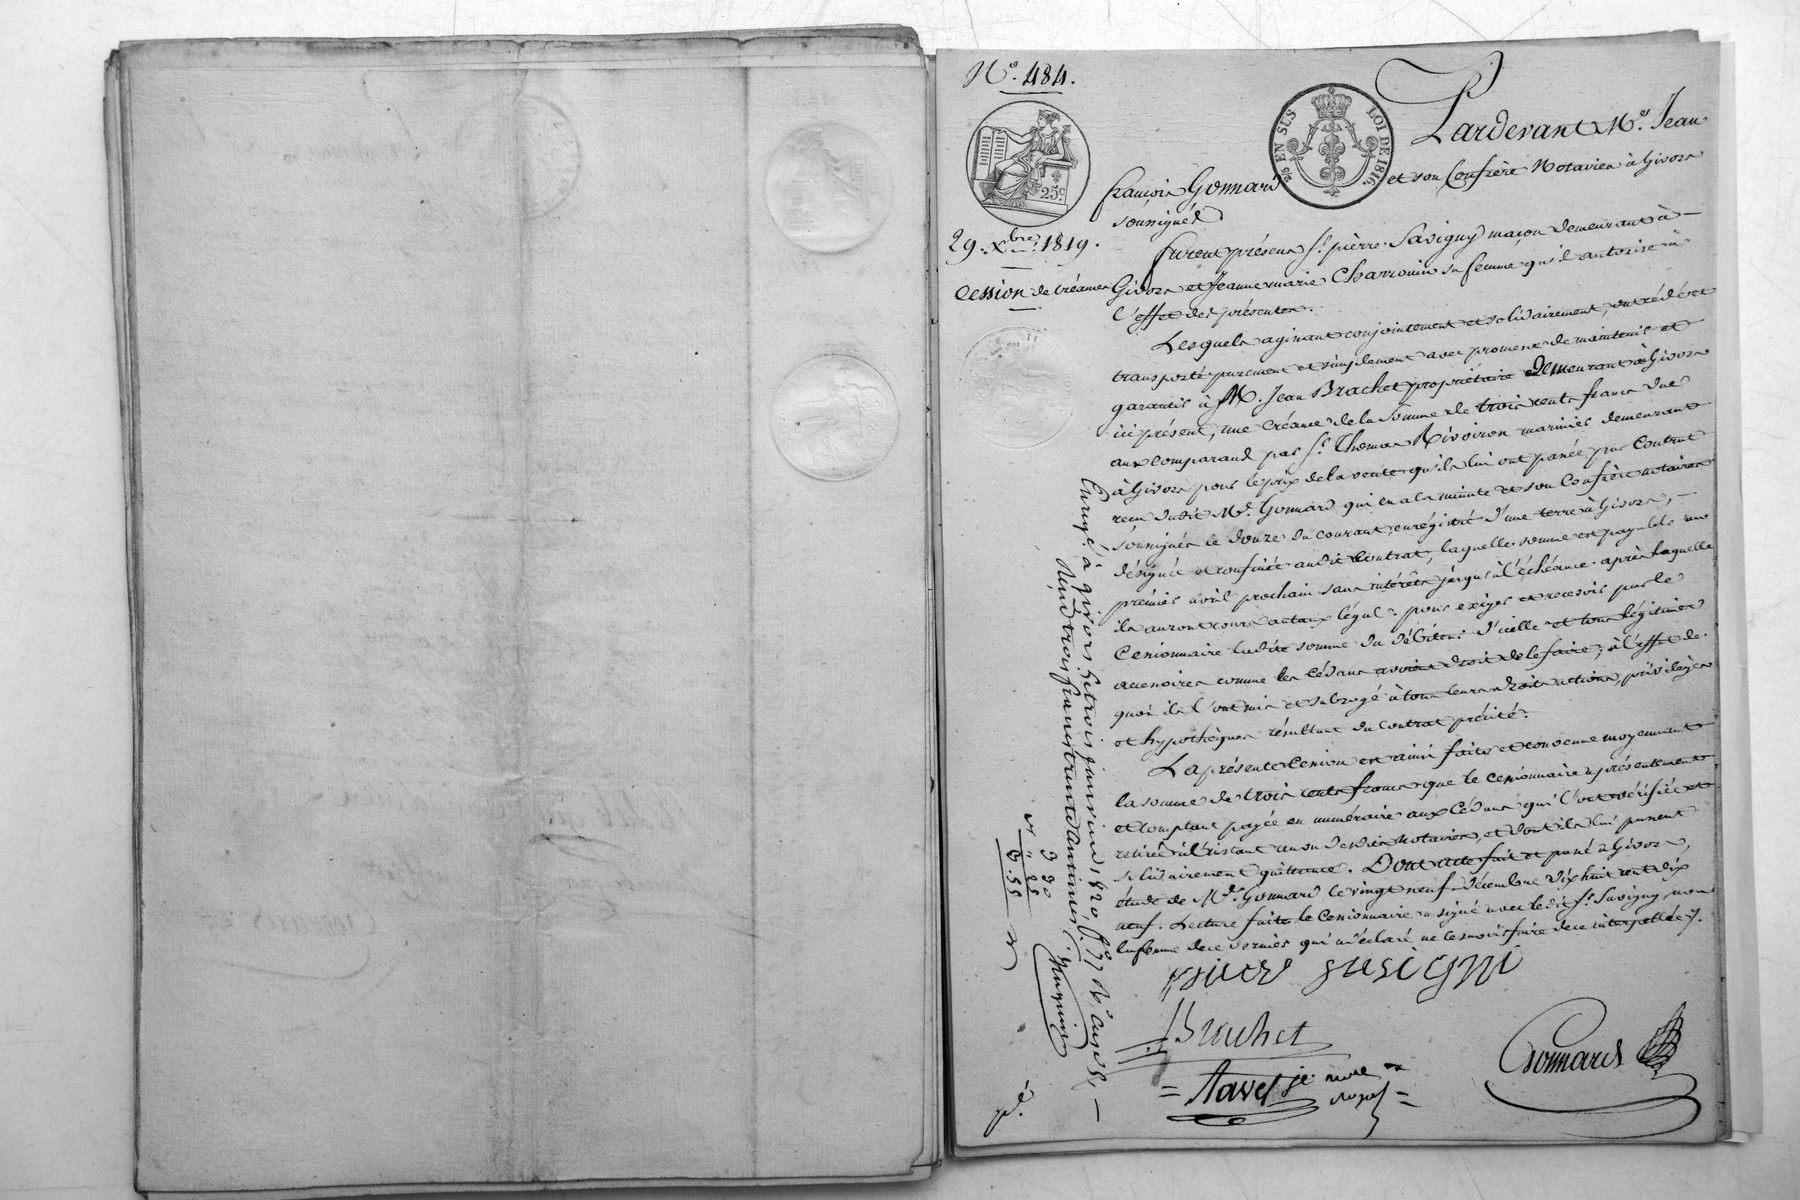 N.° 484.
25 EN SUS LOI DE 1816.
25c.
29. Xbre. 1819.
Cession de Créance
Pardevant Me. Jean
françois Gonnard et son Confrère Notaires à Givors
soussignés
furent présens Sr. pierre Savigny maçon demeurant à
Givors et Jeanne marie Charrouin sa femme qu'il autorise à
l'effet des présentes.
Lesquels agissant conjointement et solidairement, ont cédé et
transporté purement et simplement avec promesse de maintenir et
garantir à M. Jean Brachet propriétaire demeurant à Givors
ici présent, une Créance de la Somme de trois cents francs due
aux comparans par Sr. Thomas Rivoiron marinier demeurant
à Givors pour le prix de la vente qu'ils lui ont passée par Contrat
reçu dudit Me. Gonnard qui en a la minute et son Confrère notaires
soussignés le douze du courant, enrégistré d'une terre à Givors,
désignée et confinée audit Contrat, laquelle somme est payable au
premier avril prochain sans intérêts jusqu'à l'échéance après laquelle
ils auront cours au taux légal : pour exiger et recevoir par le
Cessionnaire ladite somme du débiteur d'icelle et tous légitimes
accessoires comme les Cédans avoient droit de le faire ; à l'effet de
quoi ils l'ont mis et subrogé à tous leurs droits actions, priviléges
et hypothèques résultant du Contrat précité.
La présente Cession est ainsi faite et convenue moyennant
la somme de trois cents francs que le cessionnaire a présentement
et comptant payée en numéraire aux Cédans qui l'ont vérifiée et
retirée à l'instant au vu desdits Notaires, et dont ils lui passent
solidairement quittance. Dont acte fait et passé à Givors,
étude de Me. Gonnard le vingt neuf décembre dix huit cent dix
neuf. Lecture faite le Cessionnaire a signé avec ledit Sr. Savigny, non
la femme de ce dernier qui a déclaré ne le savoir faire de ce interpellée.
Brachet
Gonnard
Enregé. à givors le trois janvier 1820, fo. 77
Reçu trois francs trente centimes
3 30
" 25
3.55